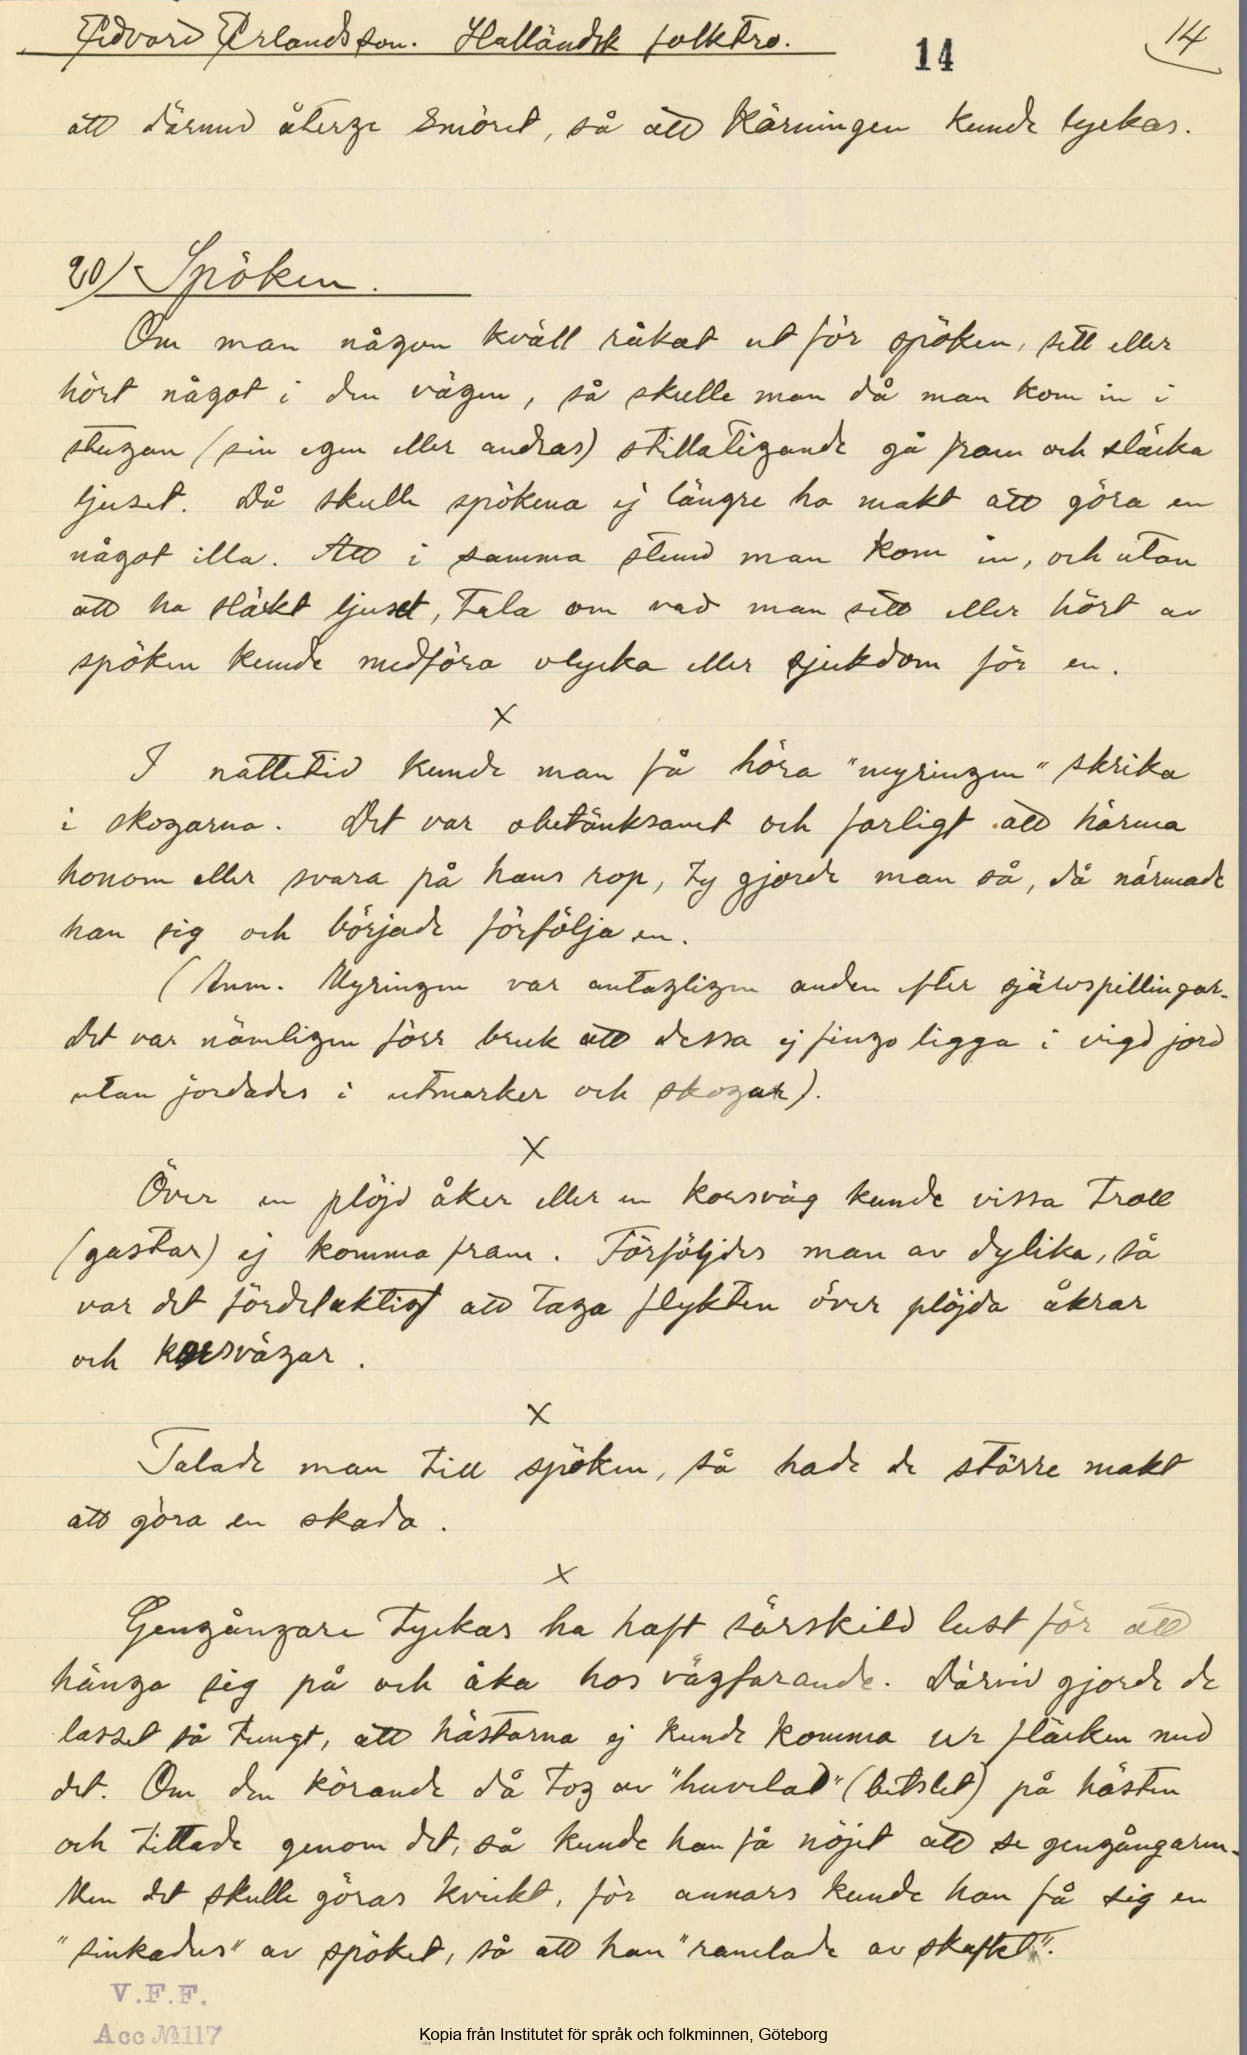 Edvard Erlandsson. Halländsk folktro.
14
14
att därmed återge smöret, så att kärningen kunde lyckas.
20) Spöken.
Om man någon kväll råkat ut för spöken, sett eller
hört något i den vägen, så skulle man då man kom in i
stugan (sin egen eller andras) stillatigande gå fram och släcka
ljuset. Då skulle spökena ej längre ha makt att göra en
något illa. Att i samma stund man kom in, och utan
att ha släckt ljuset, tala om vad man sett eller hört av
spöken kunde medföra olycka eller sjukdom för en.
x
I nattetid kunde man få höra "myringen" skrika
i skogarna. Det var obetänksamt och farligt att härma
honom eller svara på hans rop, ty gjorde man så, då närmade
han sig och började förfölja en.
(Anm. Myringen var antagligen anden efter självspillingar.
Det var nämligen förr bruk att dessa ej fingo ligga i vigd jord
utan jordades i utmarker och skogar).
x
Över en plöjd åker eller en korsväg kunde vissa troll
(gastar) ej komma fram. Förföljdes man av dylika, så
var det fördelaktigt att taga flykten över plöjda åkrar
och korsvägar.
x
Talade man till spöken, så hade de större makt
att göra en skada.
x
Gengångare tyckas ha haft särskild lust för att
hänga sig på och åka hos vägfarande. Därvid gjorde de
lasset så tungt, att hästarna ej kunde komma ur fläcken med
det. Om den körande då tog av "huvelad" (betslet) på hästen
och tittade genom det, så kunde han få nöjet att se gengångaren.
Men det skulle göras kvickt, för annars kunde han få sig en
"sinkadus" av spöket, så att han "ramlade av skaftet".
V.F.F.
Acc № 117
Kopia från Institutet för språk och folkminnen, Göteborg